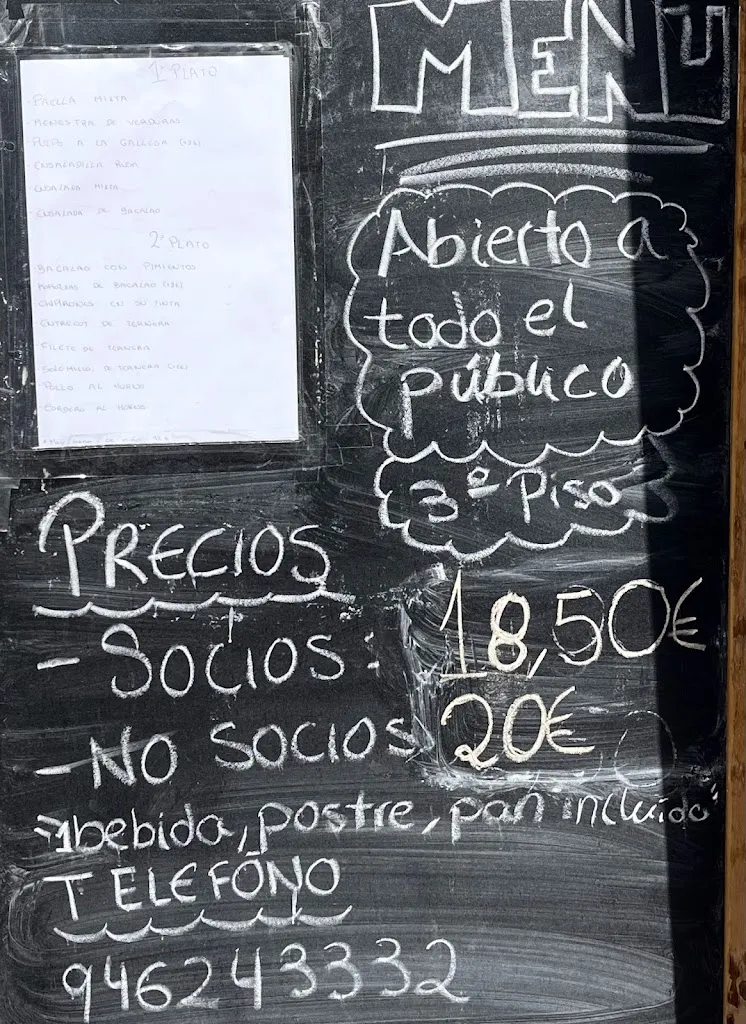 MENU
1º PLATO
- PAELLA MIXTA
- MENESTRA DE VERDURAS
- PULPO A LA GALLEGA (+2€)
- ENSALADILLA RUSA
- ENSALADA MIXTA
- ENSALADA DE BACALAO
2º PLATO
BACALAO CON PIMIENTOS
DE BACALAO
CHIPIRONES EN SU TINTA
- ENTRECOT DE TERNERA
- FILETE DE TERNERA
- SOLOMILLO DE TERNERA
- POLLO AL HORNO
- CORDERO AL HORNO
Abierto a
todo el
público
3º Piso
PRECIOS
- SOCIOS: 18,50€
- NO SOCIOS 20€
1bebida, postre, pan incluido"
TELEFÓNO
946243332